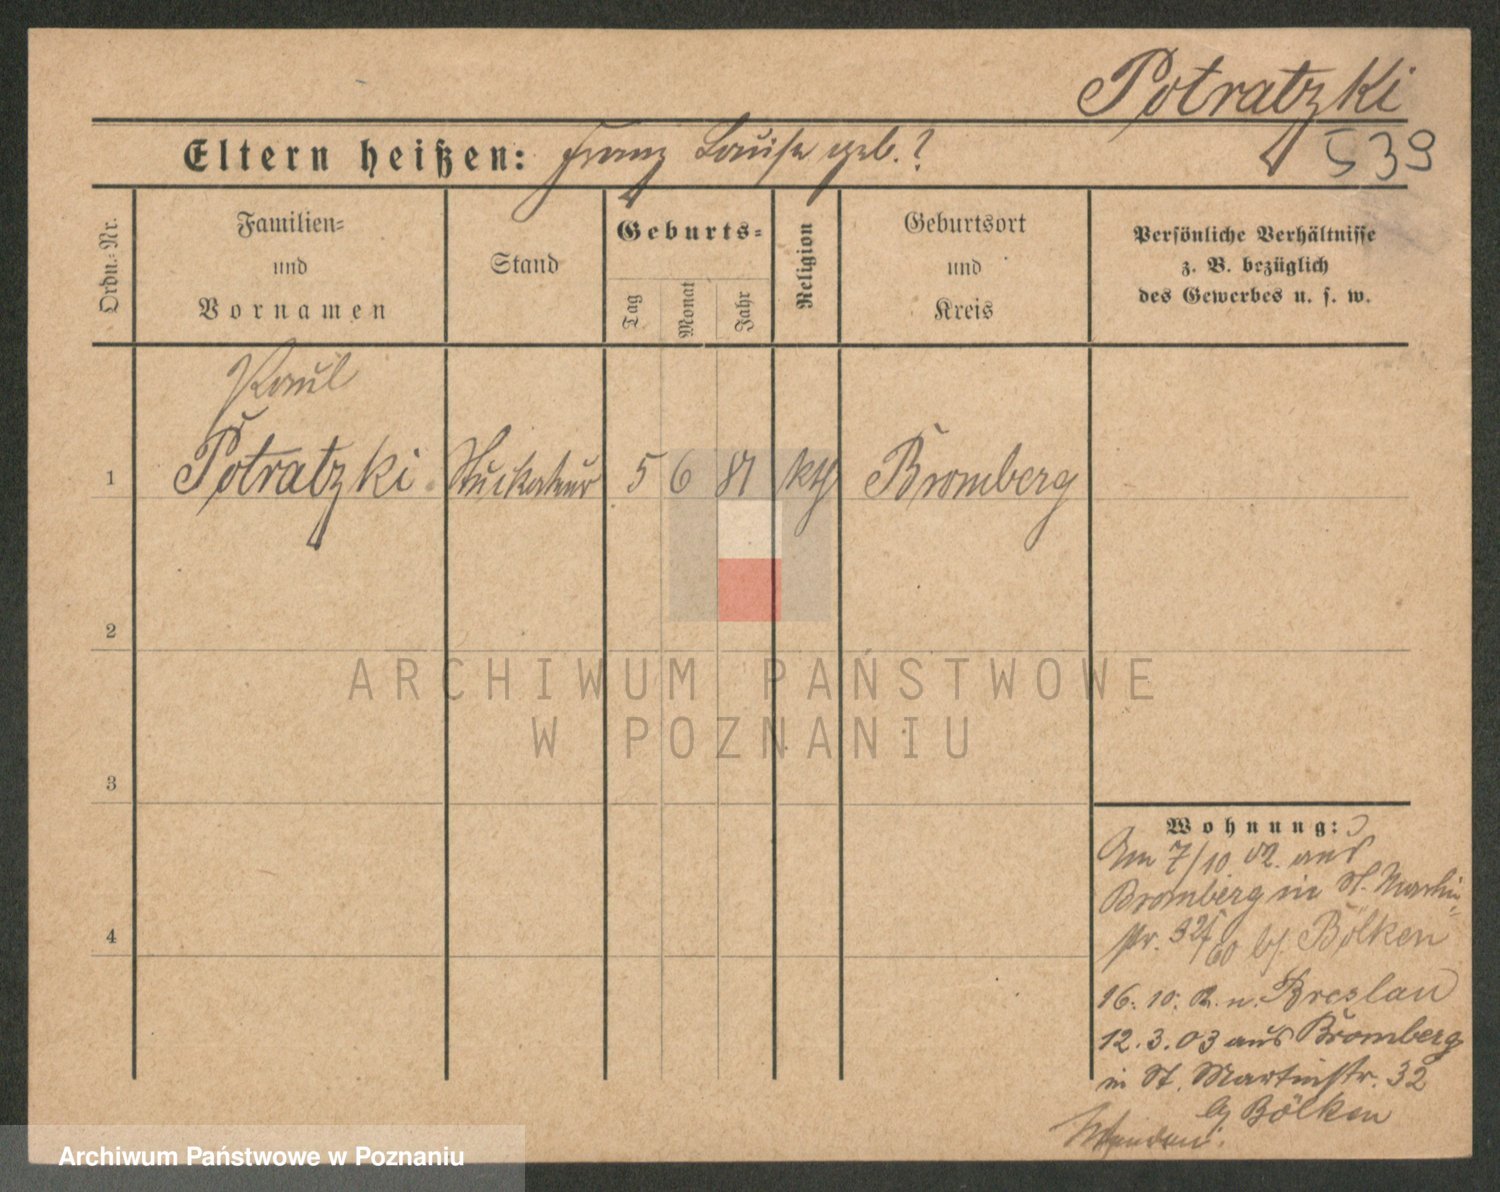 Potratzki
539
Eltern heißen: Franz Louise geb. ?
Ordn.-Nr.
Familien-
und
Vornamen
Stand
Geburts-
Tag
Monat
Jahr
Religion
Geburtsort
und
Kreis
Persönliche Verhältnisse
z. B. bezüglich
des Gewerbes u. s. w.
Paul
1 Potratzki Stuckateur 5 6 81 kth Bromberg
2
ARCHIWUM PAŃSTWOWE
W POZNANIU
3
4
Wohnung:
Am 7/10. 02. aus
Bromberg in St. Martin-
str. 32 Bölken
16. 10. 02. n. Breslau
12. 3. 03 aus Bromberg
in St. Martinstr. 32
bj Bölken
Wenden!
Archiwum Państwowe w Poznaniu